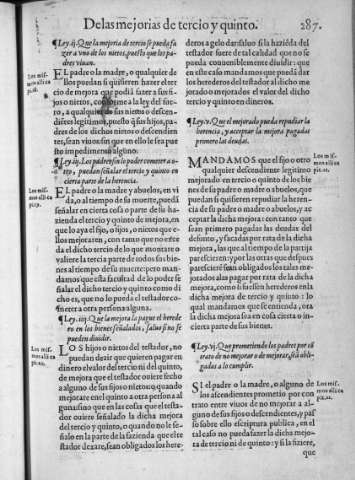 De las mejorias de tercio y quinto. 287.
¶ Ley .ij. Que la mejoria de tercio se pueda fa
zer a vno de los nietos, puesto que los pa
dres viuan.
EL padre o la madre, o qualquier de
llos puedan si quisieren hazer el ter
cio de mejora que podiã fazer a sus fi
jos o nietos, conforme a la ley del fue
ro, a qualquier de sus nietos o descen-
dientes legitimos, puesto q̃ sus hijos, pa-
dres de los dichos nietos o descendien
tes, sean viuos sin que en ello le sea pue
sto impedimento alguno.
¶ Ley .iij. Los padres
, puedan señalar el tercio y quinto en
cierta parte de la herencia.
EL padre o la madre y abuelos, en vi
da, o al tiempo de su muerte, puedã
señalar en cierta cosa o parte de su ha
zienda el tercio y quinto de mejora, en
que lo aya el fijo, o fijos, o nietos que e-
llos mejoraren, con tanto que no exce
da el dicho tercio de lo que montare o
valiere la tercia parte de todos sus bie
nes al tiempo de su muerte: pero man
damos que esta facultad de lo poder se
ñalar el dicho tercio y quinto como di
cho es, que no lo pueda el testador co-
meter a otra persona alguna.
¶ Ley .iiij. Que la mejora la pague el herede
ro en los bienes señalados, saluo si no se
pueden diuidir.
LOS hijos o nietos del testador, no
puedan dezir que quieren pagar en
dinero el valor del tercio ni del quinto,
de mejora que el testador ouiere fecho
a alguno de sus fijos o nietos: o quando
mejorare en el quinto a otra persona al
guna: sino que en las cosas que el testa-
dor ouiere señalado la dicha mejora
del tercio y quinto, o quando no le se-
ñalo en la parte de la fazienda que el te
stador dexare, sean obligados los here-
deros a gelo dar: saluo si la haziẽda del
testador fuere de tal calidad que no se
pueda conuenibleme̅te diuidir: que
en este caso mandamos que pueda dar
los herederos del testador al dicho me
jorado o mejorados el valor del dicho
tercio y quinto en dineros.
¶ Ley .v. Que el mejorado pueda repudiar la
herencia, y acceptar la mejora pagadas
primero las deudas.
MANDAMOS que el fijo o otro
qualquier descendiente legitimo
mejorado en tercio o quinto de los bie
nes de su padre o madre o abuelos, que
puedan si quisieren repudiar la heren-
cia de su padre o madre o abuelos, y ac
ceptar la dicha mejora: con tanto que
sean primero pagadas las deudas del
defunto, y sacadas por rata de la dicha
mejora, las que al tiempo de la partija
parescieren: y por las otras que despues
parescierẽ sean obligados los tales me-
jorados a las pagar por rata de la dicha
mejora, como si fuessen herederos en
la dicha mejora de tercio y quinto: lo
qual mandamos que se entienda, ora
la dicha mejora sea en cosa cierta o in
cierta parte de sus bienes.
¶ Ley .vj. Que prometiendo los padres por cõ
trato de no mejorar o de mejorar, seã obli-
gados a lo cumplir.
SI el padre o la madre, o alguno de
los ascendientes prometio por con
trato entre viuos de no mejorar a al-
guno de sus fijos o descendientes, y paf
so sobre ello escriptura publica, en el
tal caso no pueda fazer la dicha mejo-
ra de tercio ni de quinto: y si la fiziere,
que